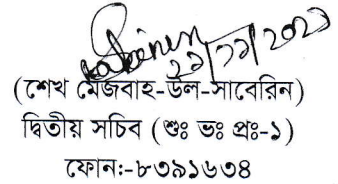 ২১/১১/২০২১
(শেখ মেজবাহ-উল-সাবেরিন)
দ্বিতীয় সচিব (শুঃ ভঃ প্রঃ-১)
ফোন:-৮৩৯১৬৩৪